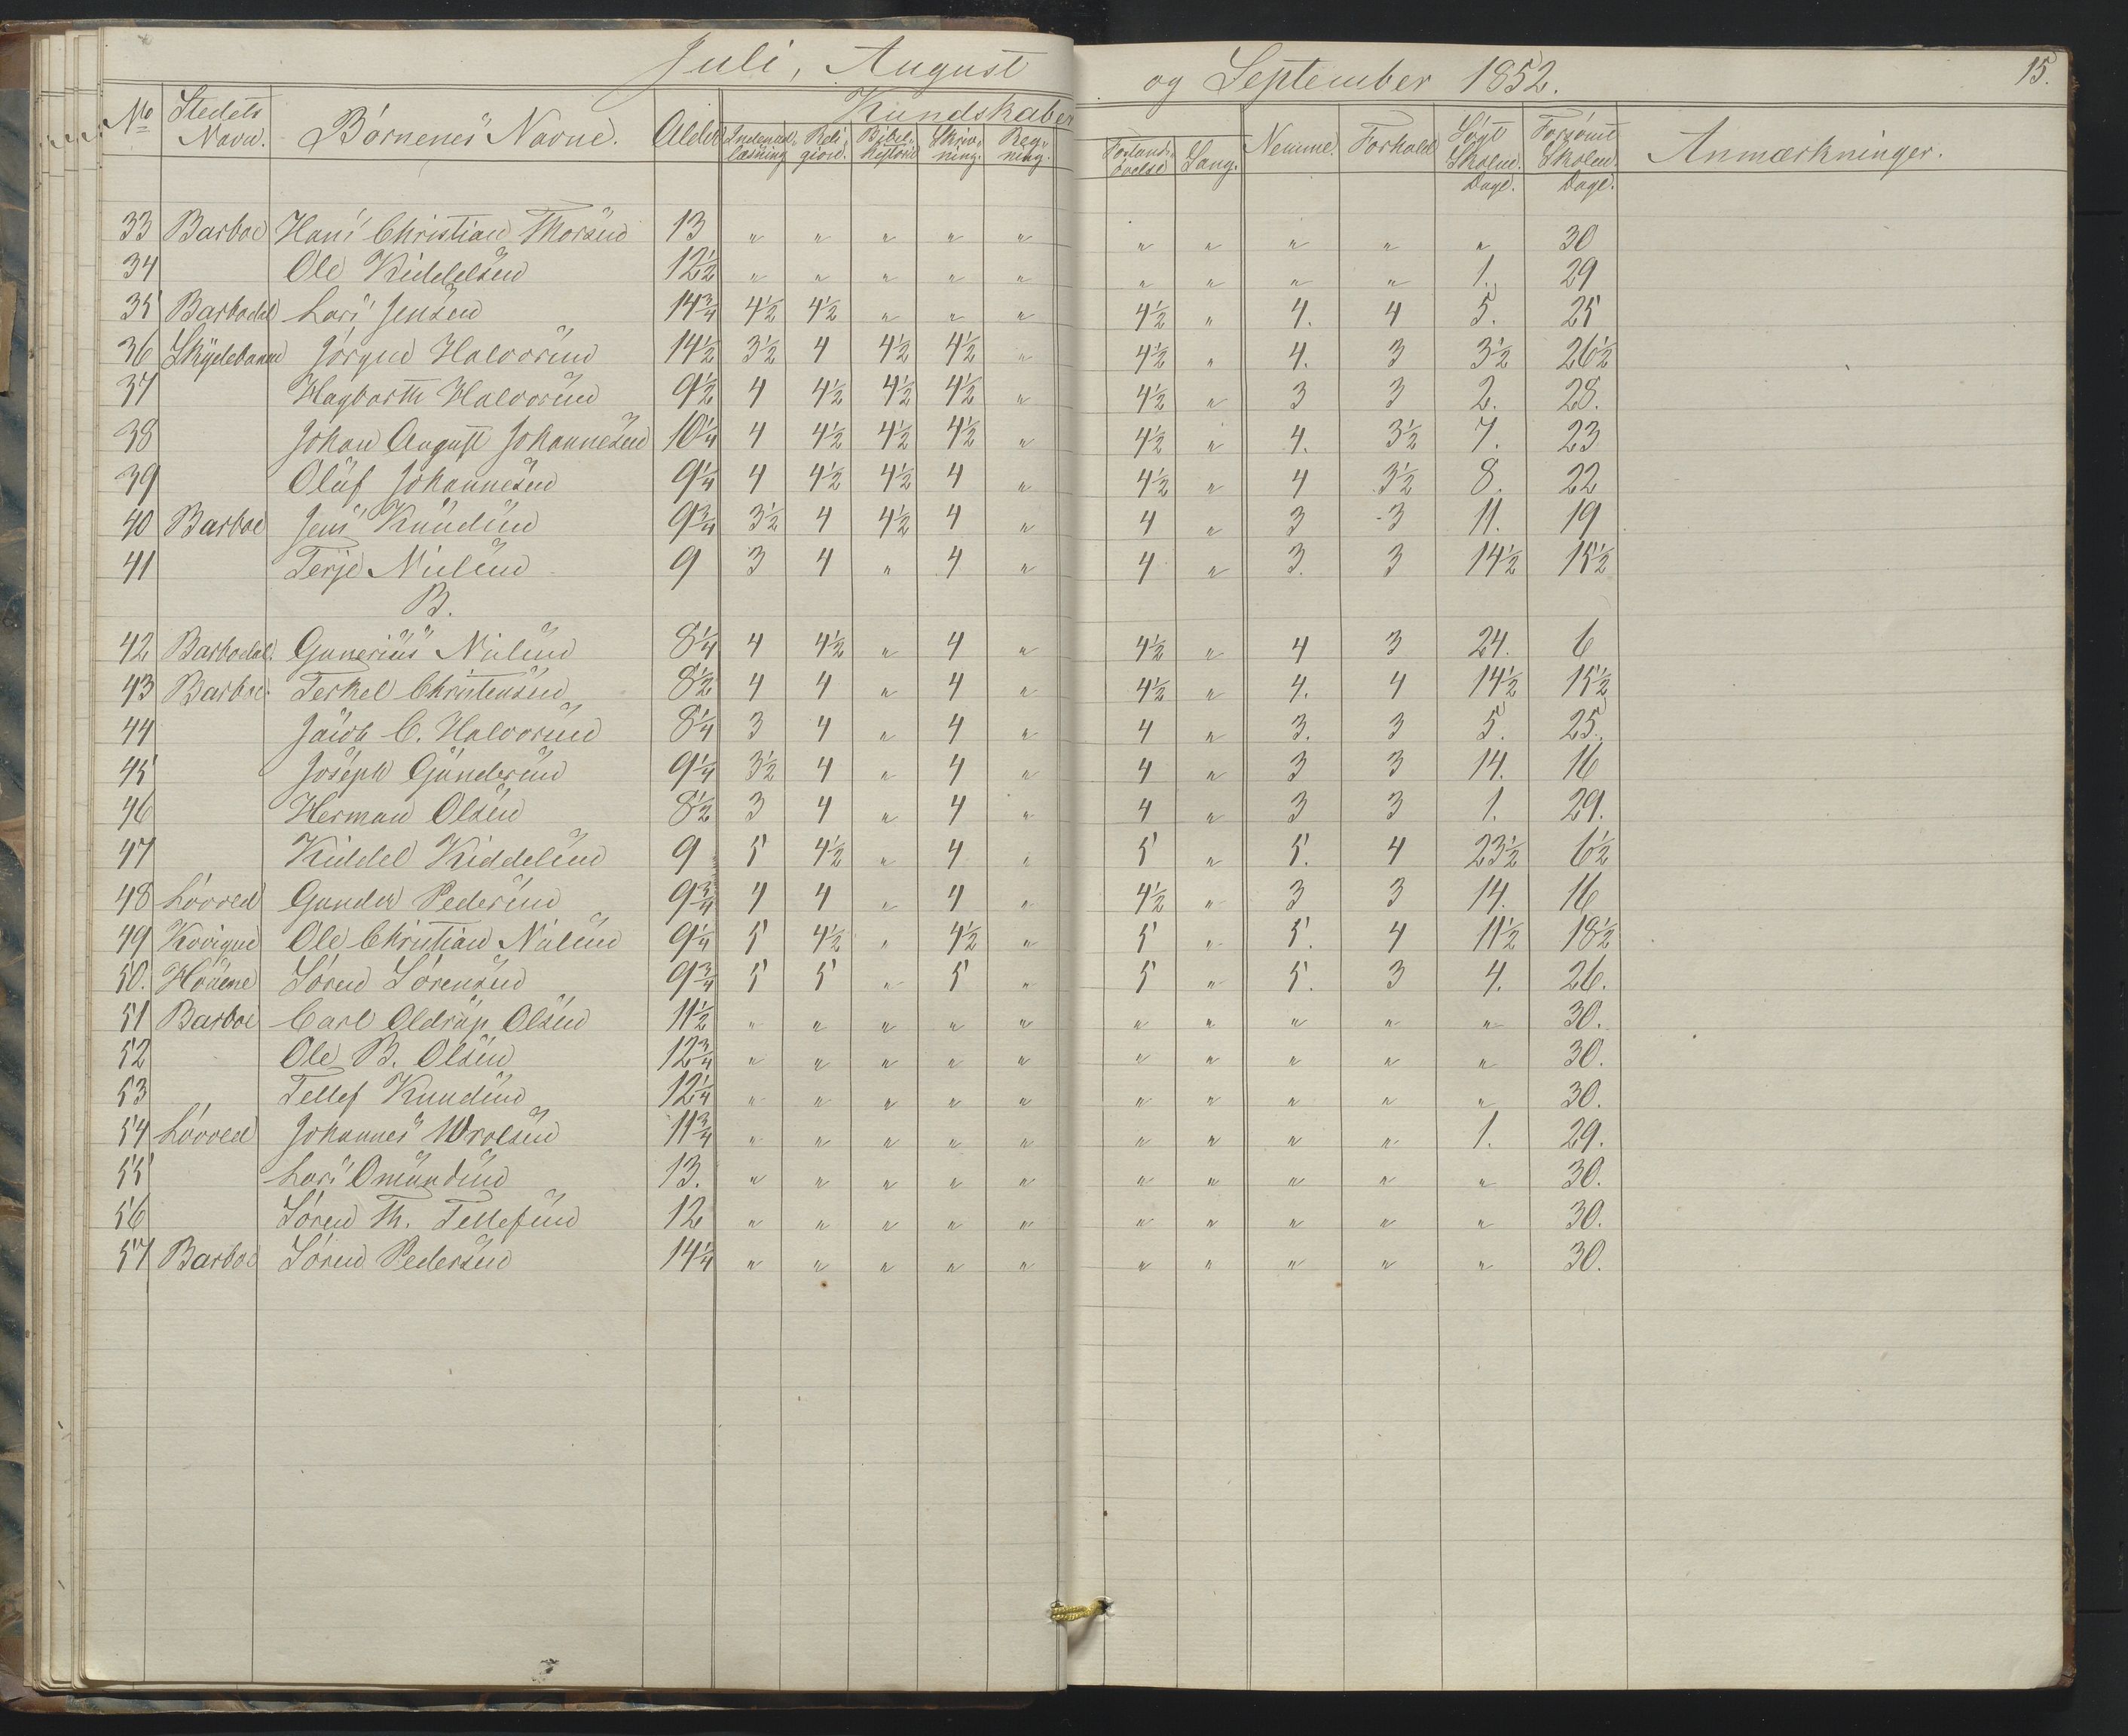 Juli, August og September 1852. 15.
Kundskaber
No Stedets Navn. Børnenes Navne. Alder Indenad-læsning Reli-gion. Bibel-historie Skriv-ning. Reg-ning. Forstands-øvelse Sang. Nemme. Forhold Søgt Skolen. Dage. Forsømt Skolen. Dage. Anmærkninger.
33 Barboe Hans Christian Thorsen 13 " " " " " " " " " " 30
34 Ole Kiddelsen 12½ " " " " " " " " " 1. 29
35 Barbodal Lars Jensen 14¾ 4½ 4½ " " " 4½ " 4. 4 5. 25
36 Skydebanen Jørgen Halvorsen 14½ 3½ 4 4½ 4½ " 4½ " 4. 3 3½ 26½
37 Hagbarth Halvorsen 9½ 4 4½ 4½ 4½ " 4½ " 3 3 2. 28.
38 Johan August Johannesen 10¼ 4 4½ 4½ 4½ " 4½ " 4. 3½ 7. 23
39 Oluf Johannesen 9¼ 4 4½ 4½ 4 " 4½ " 4 3½ 8. 22
40 Barboe Jens Knudsen 9¾ 3½ 4 4½ 4 " 4 " 3 3 11. 19
41 Terje Nielsen 9 3 4 " 4 " 4 " 3. 3 14½ 15½
B.
42 Barbodal. Gunerius Nielsen 8¼ 4 4½ " 4 " 4½ " 4 3 24. 6
43 Barboe. Terkel Christensen 8½ 4 4 " 4 " 4½ " 4. 4 14½ 15½
44 Jacob C. Halvorsen 8¼ 3 4 " 4 " 4 " 3. 3 5. 25.
45 Joseph Gundersen 9¼ 3½ 4 " 4 " 4 " 3 3 14. 16
46 Herman Olsen 8½ 3 4 " 4 " 4 " 3 3 1. 29.
47 Kiddel Kiddelsen 9 5 4½ " 4 " 5 " 5. 4 23½ 6½
48 Løvved Gunder Pedersen 9¾ 4 4 " 4 " 4½ " 3 3 14. 16
49 Ole Christian Nielsen 9¼ 5 4½ " 4½ " 5 " 5. 4 11½ 18½
50. Søren Sørensen 9¾ 5 5 " 5 " 5 " 5. 3 4. 26.
51 Barboe Carl Oldrup Olsen 11½ " " " " " " " " " " 30.
52 Ole B. Olsen 12¾ " " " " " " " " " " 30.
53 Tellef Knudsen 12¼ " " " " " " " " " " 30.
54 Løvved Johannes Wrolsen 11¾ " " " " " " " " " 1. 29.
55 Lars Omundsen 13. " " " " " " " " " " 30.
56 Søren Th. Tellefsen 12 " " " " " " " " " " 30.
57 Barboe Søren Pedersen 14¼ " " " " " " " " " " 30.